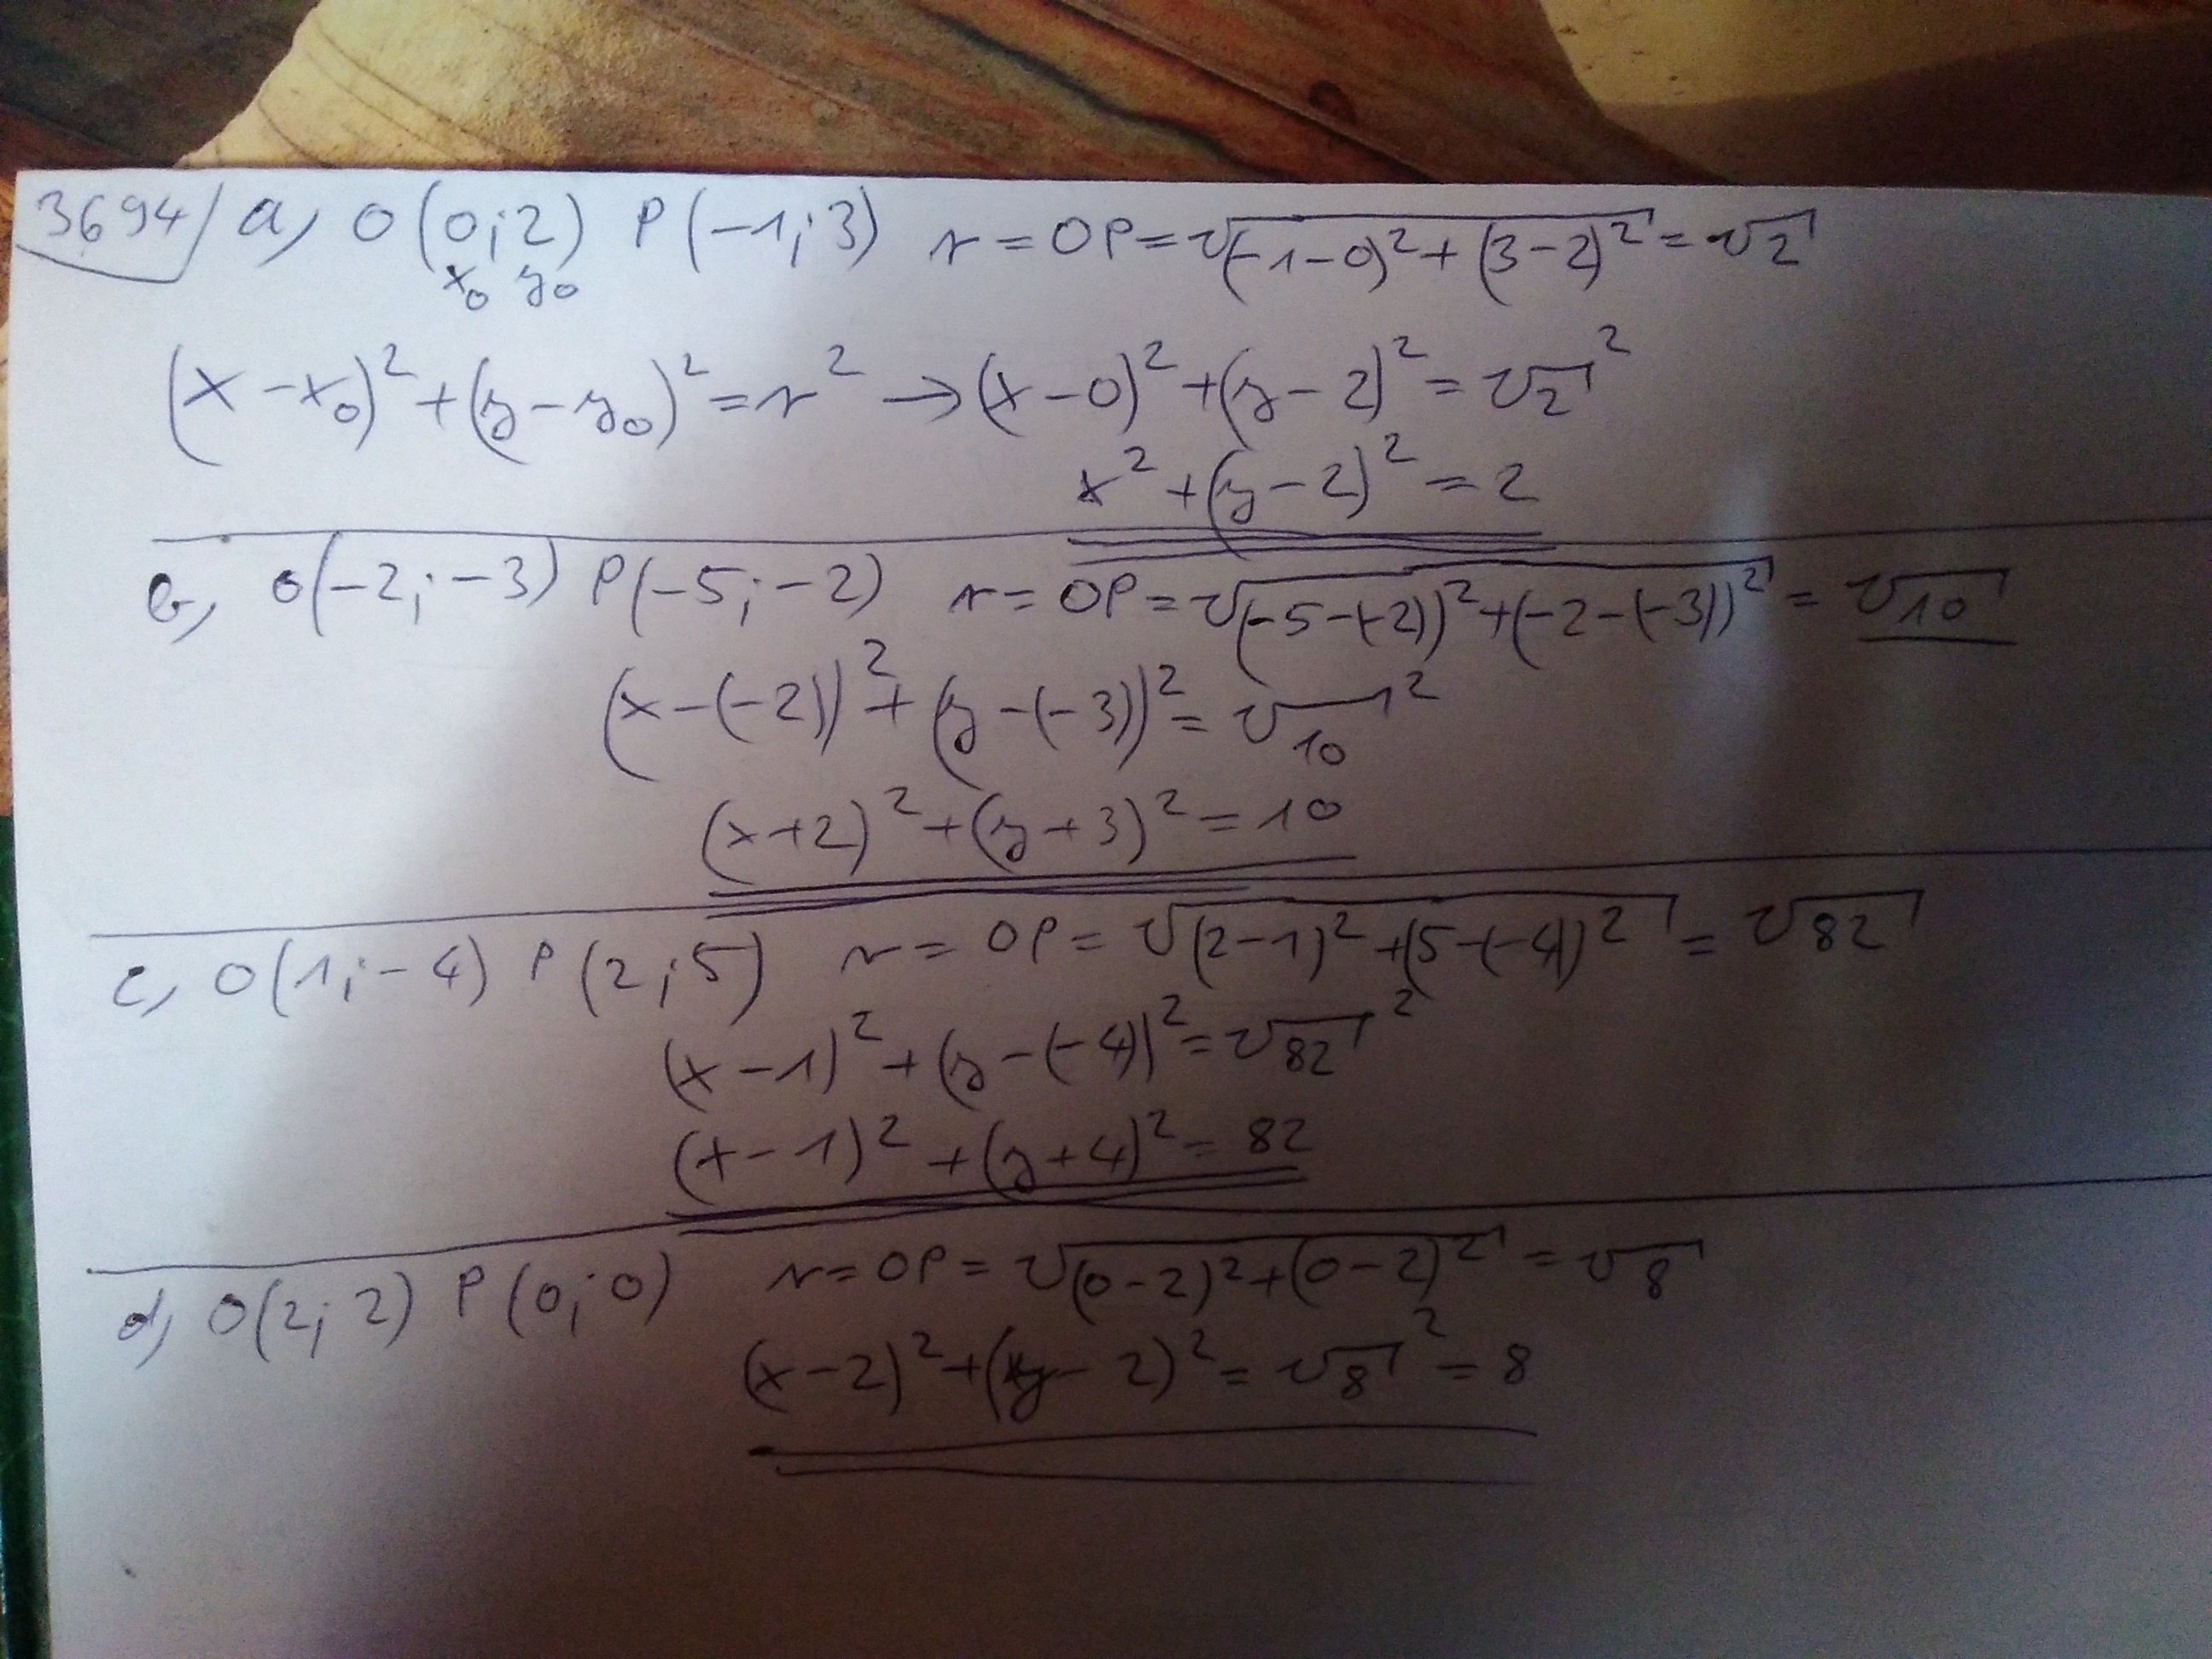 3694/ a, O(0;2) P(-1;3) r=OP=√(-1-0)²+(3-2)²=√2
x₀ y₀
(x-x₀)²+(y-y₀)²=r² → (x-0)²+(y-2)²=√2²
x²+(y-2)²=2
b, O(-2;-3) P(-5;-2) r=OP=√(-5-(-2))²+(-2-(-3))²=√10
(x-(-2))²+(y-(-3))²=√10²
(x+2)²+(y+3)²=10
c, O(1;-4) P(2;5) r=OP=√(2-1)²+(5-(-4))²=√82
(x-1)²+(y-(-4))²=√82²
(x-1)²+(y+4)²=82
d, O(2;2) P(0;0) r=OP=√(0-2)²+(0-2)²=√8
(x-2)²+(y-2)²=√8²=8